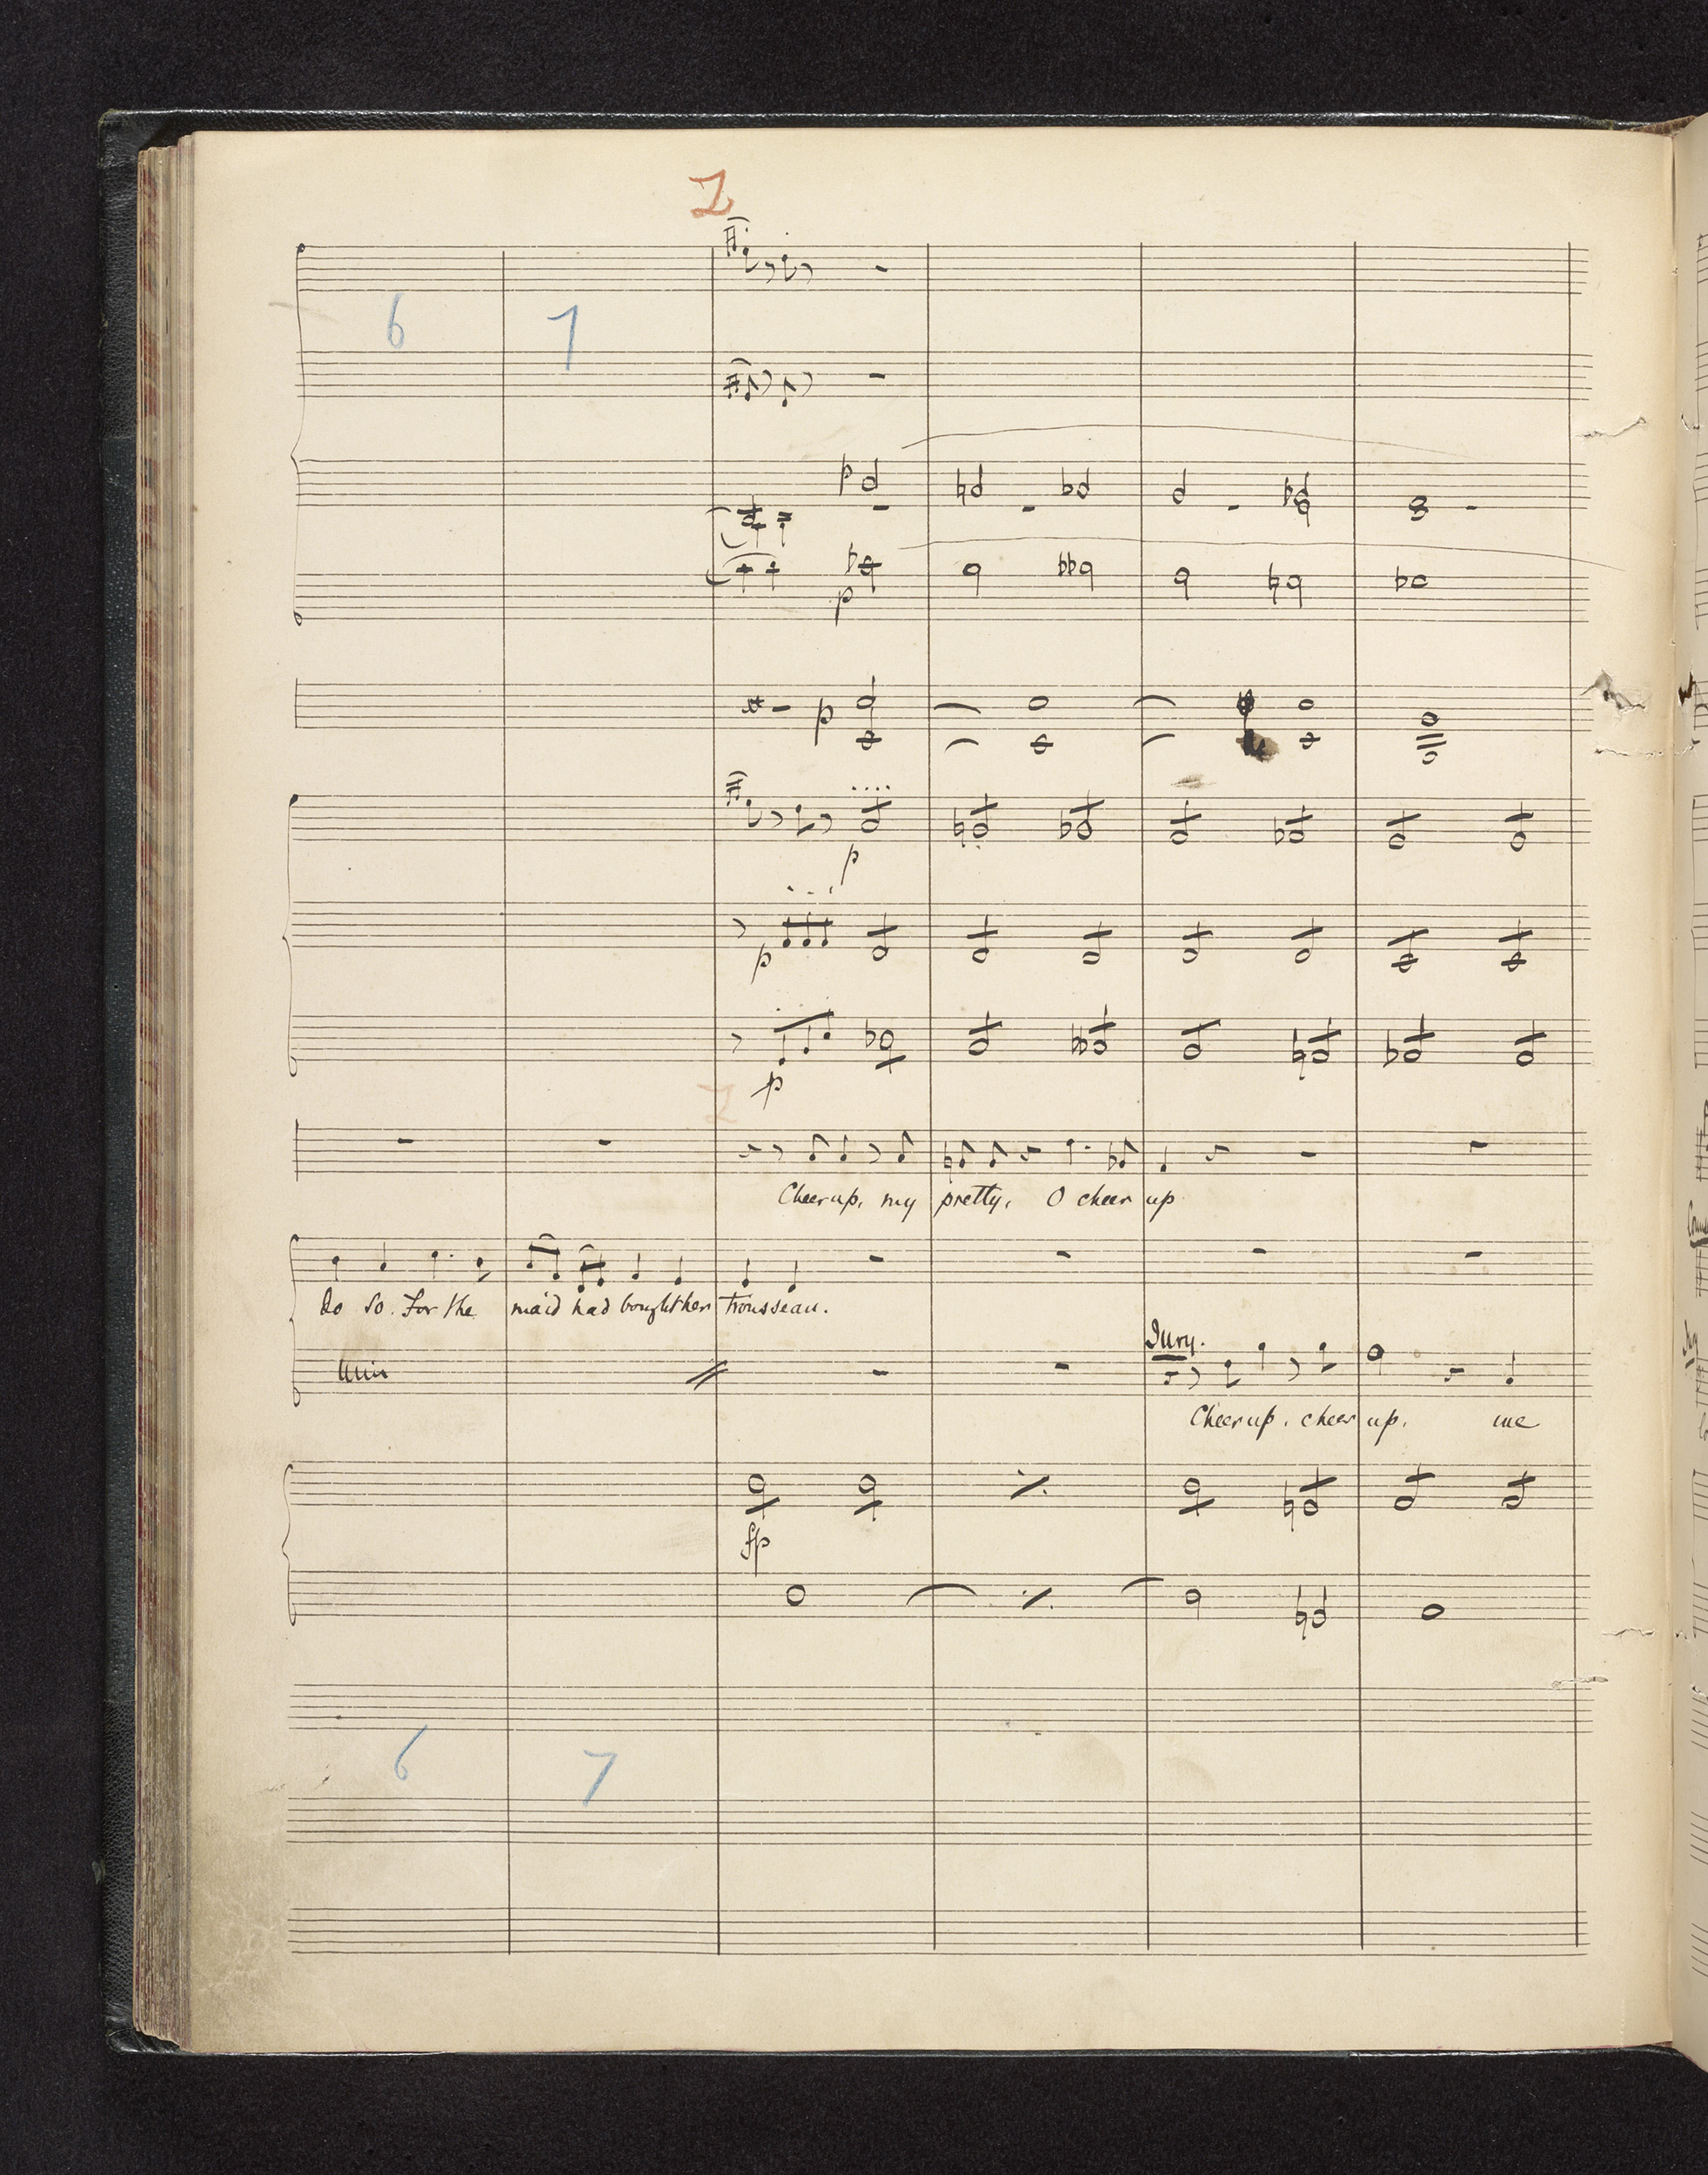 Z
6 7
p
p
p
p
p
p
Z
Cheer up, my pretty, O cheer up
do so. For the maid had bought her trousseau.
Jury.
Unis
Cheer up, cheer up, we
fp
6 7